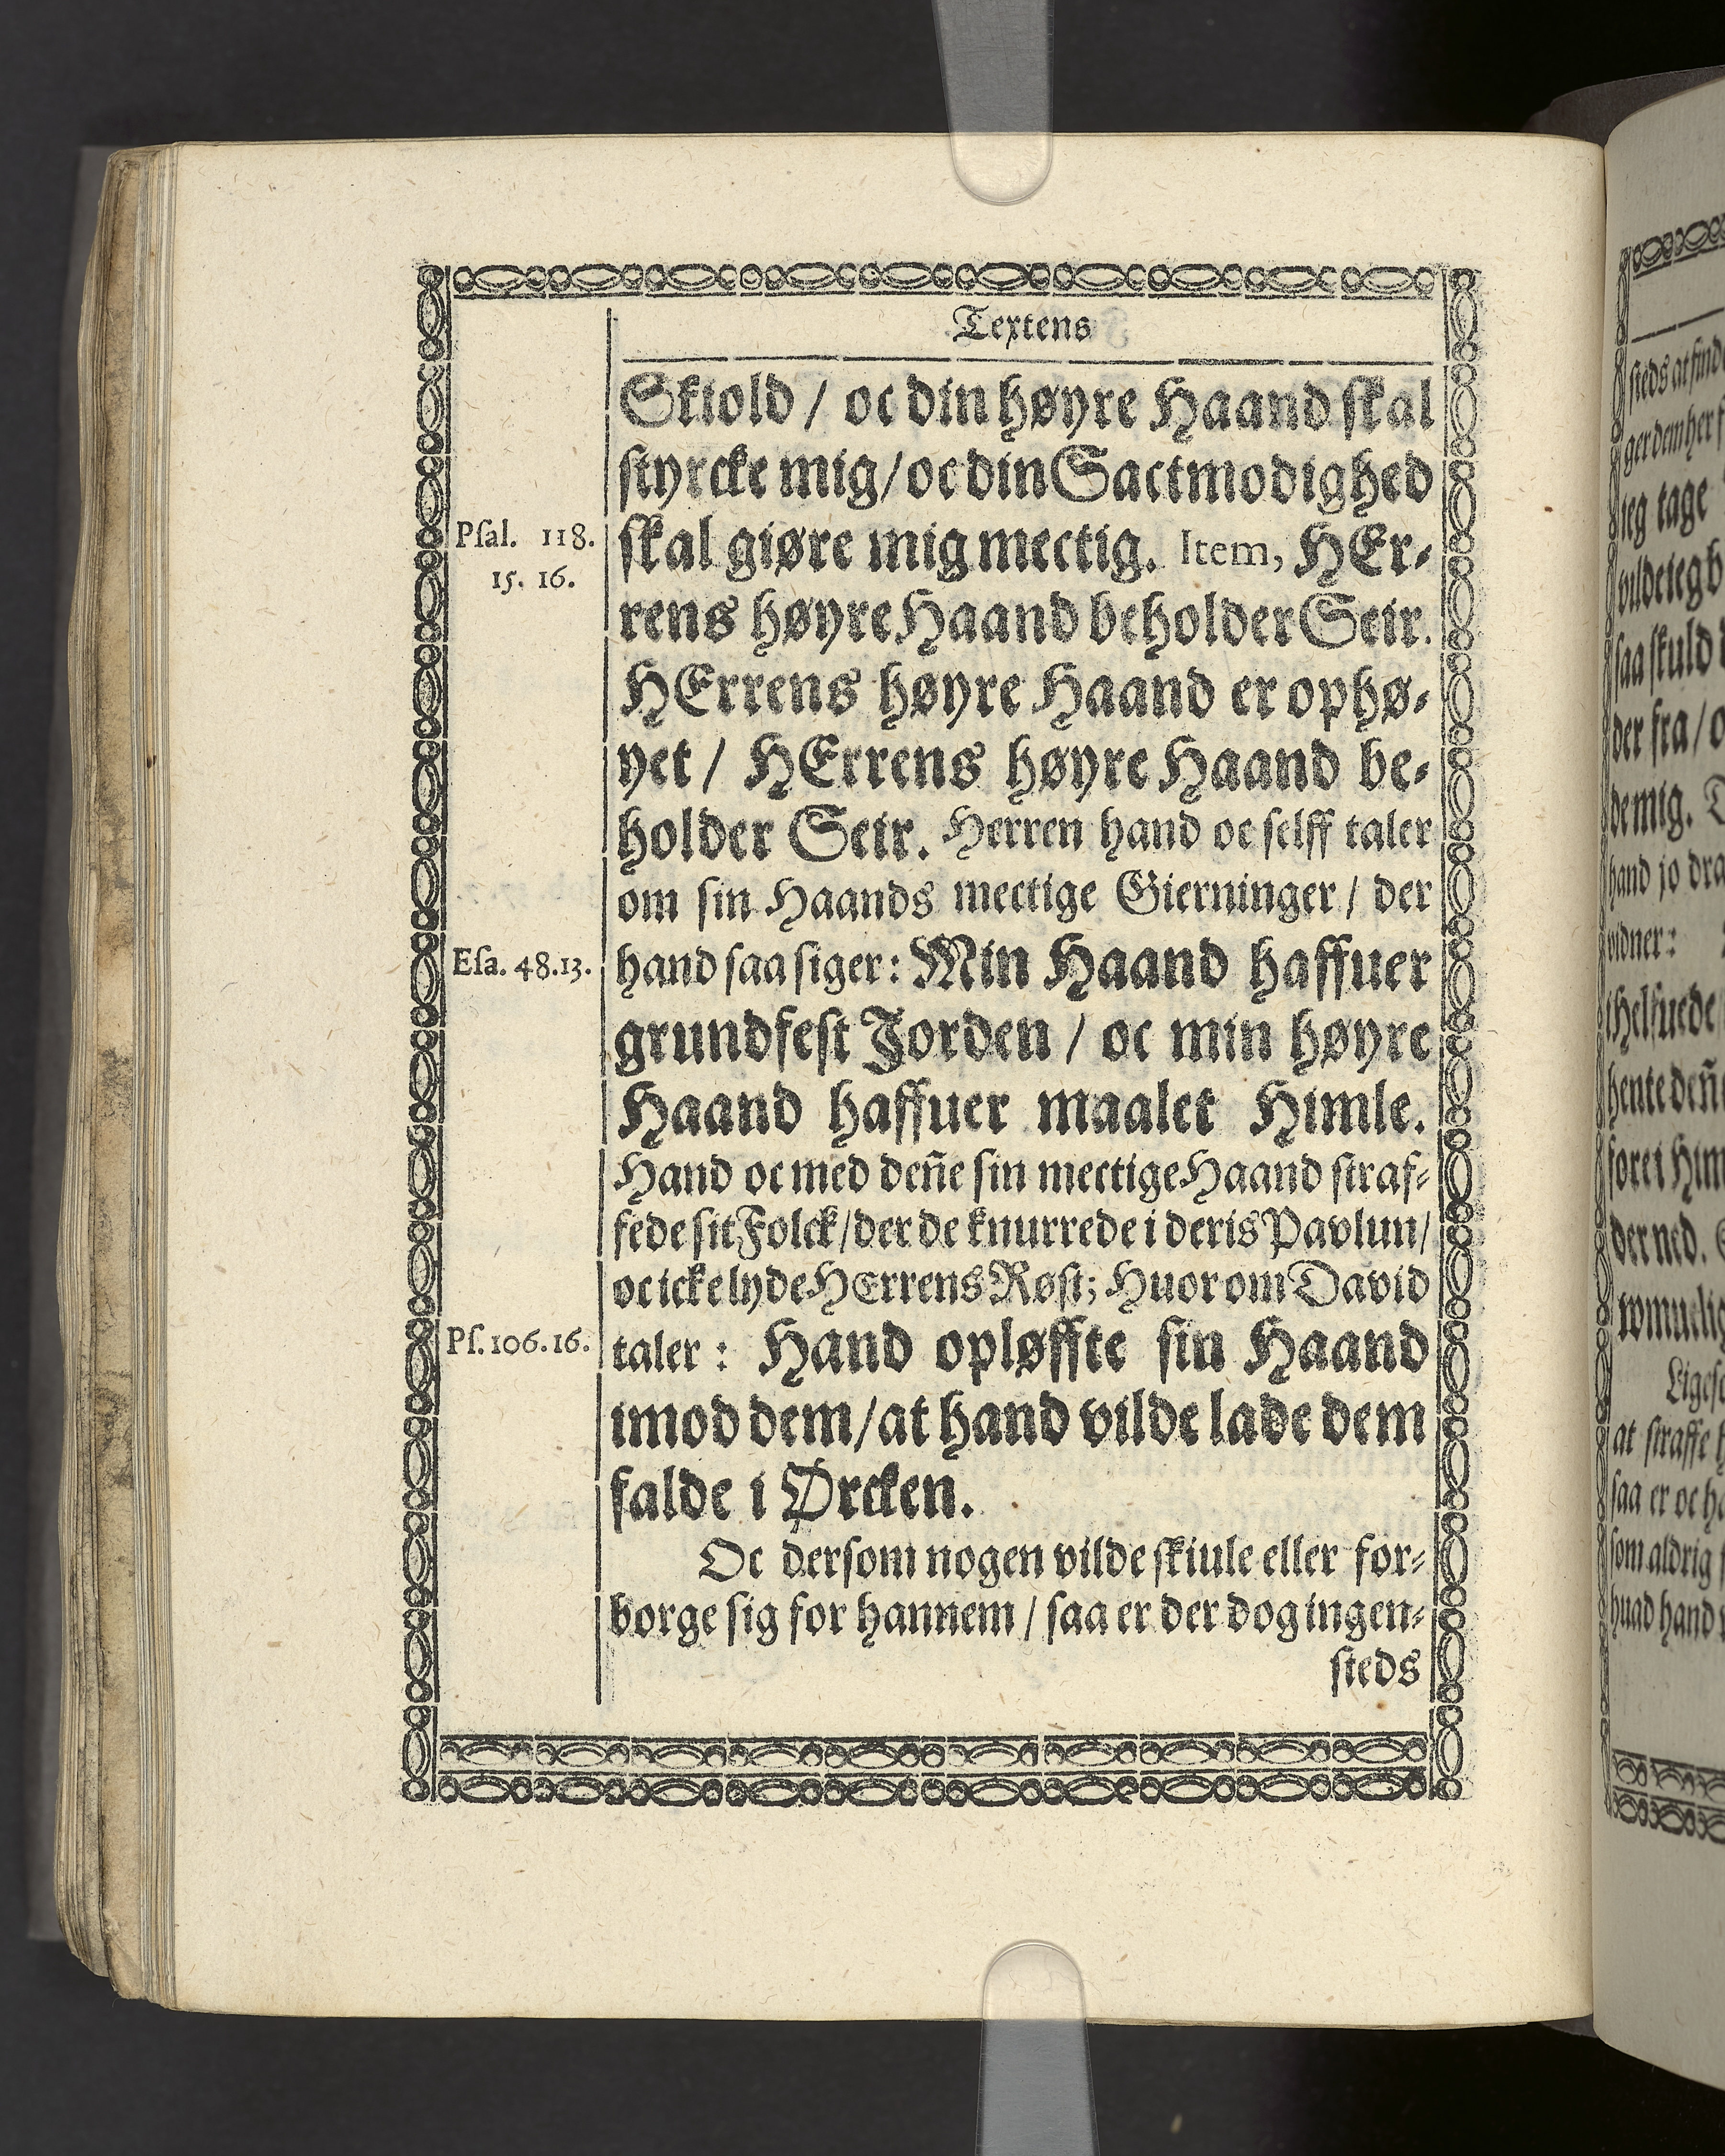 Textens
Skiold / oc din høyre Haand skal
styrcke mig / oc din Sactmodighed
Psal. 118.
15. 16.
skal giøre mig mectig. Item, HEr-
rens høyre Haand beholder Seir.
HErrens høyre Haand er ophø-
yet / HErrens høyre Haand be-
holder Seir. Herren hand oc selff taler
om sin Haands mectige Gierninger / der
Esa. 48.13.
hand saa siger: Min Haand haffuer
grundfest Jorden / oc min høyre
Haand haffuer maalet Himle.
Hand oc med deñe sin mectige Haand straf-
fede sit Folck / der de knurrede i deris Pavlun /
oc icke lyde HErrens Røst; Huor om David
Ps. 106.16.
taler: Hand opløffte sin Haand
imod dem / at hand vilde lade dem
falde i Ørcken.
Oc dersom nogen vilde skiule eller for-
borge sig for hannem / saa er der dog ingen-
steds